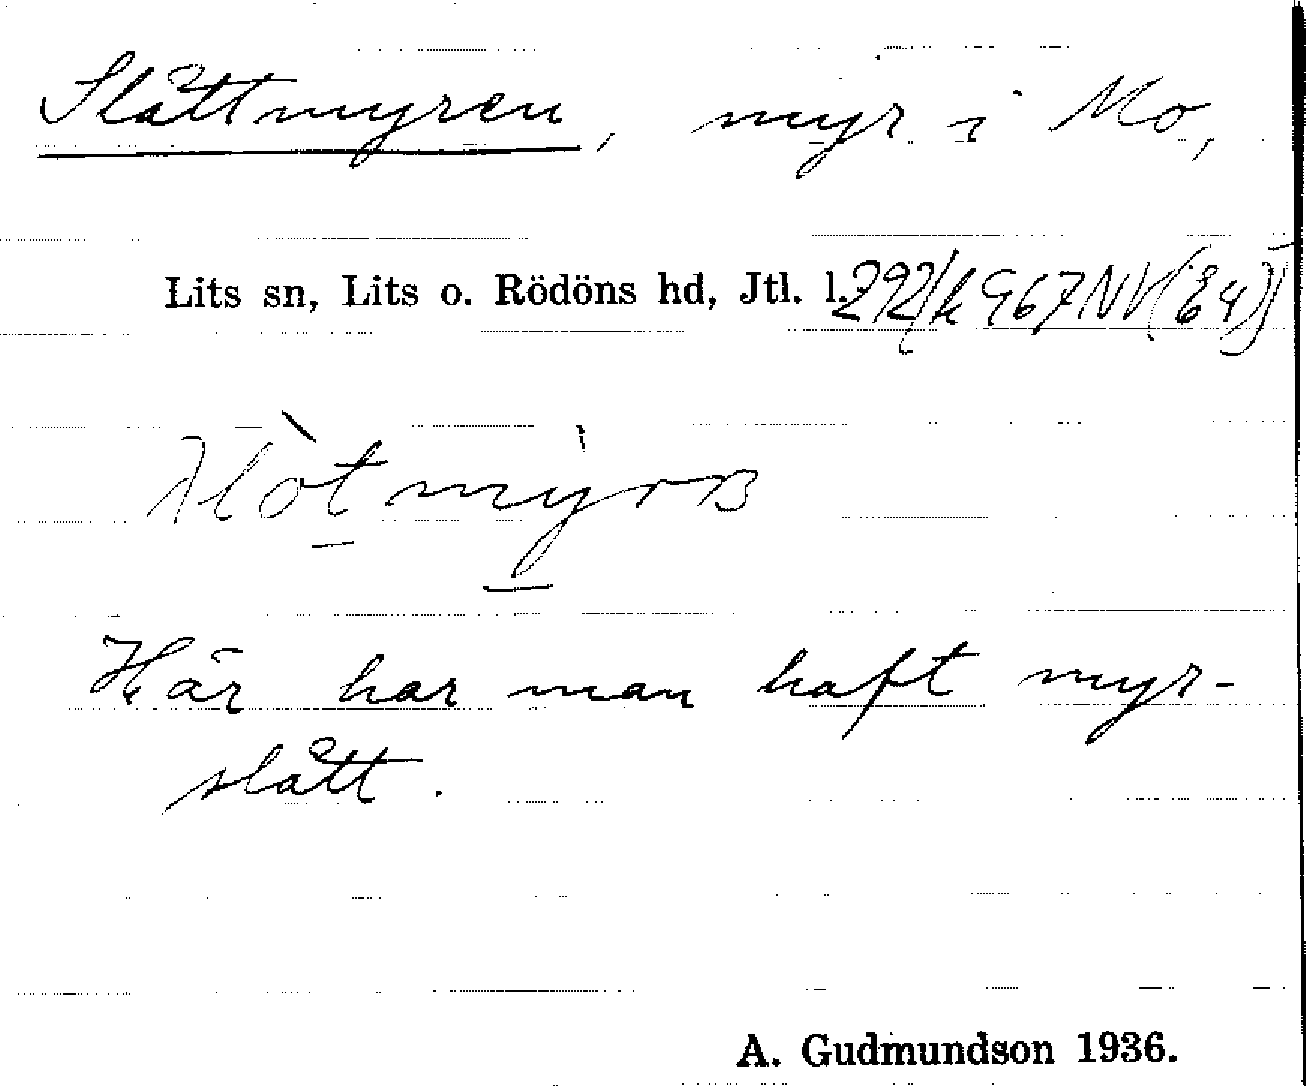 Slåttmyren, myr i Mo,
Lits sn, Lits o. Rödöns hd, Jtl. l.
Här har man haft myr-
slått.
A. Gudmundson 1936.